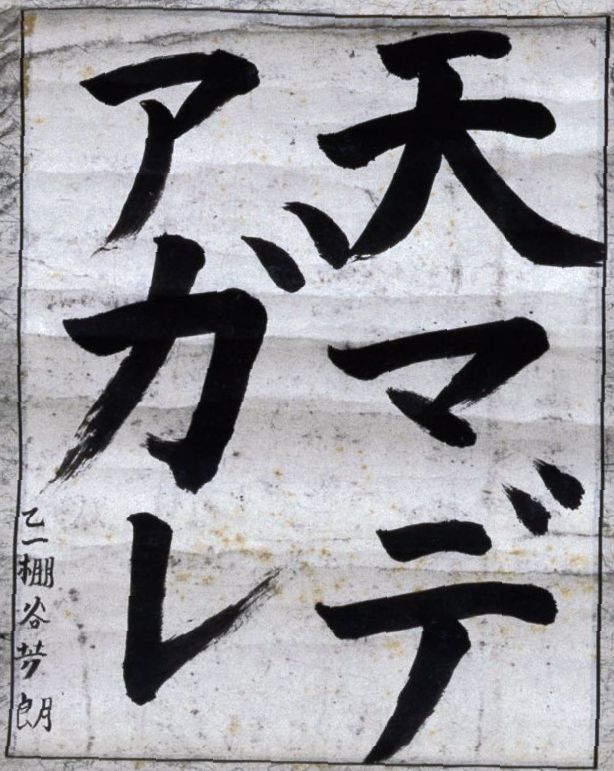 天マデ
アガレ
乙一棚谷芳朗